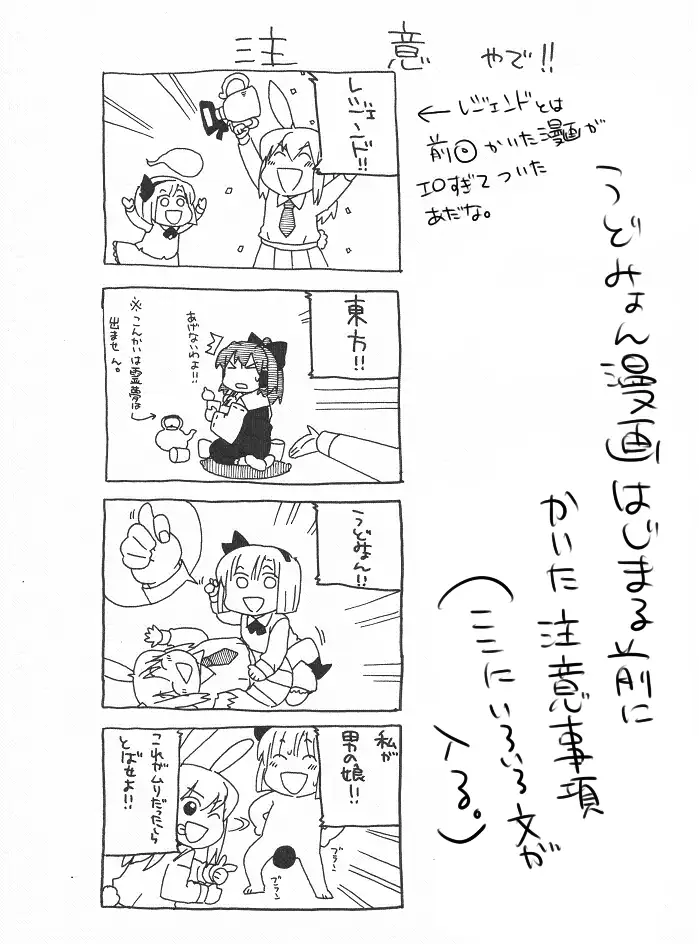 注意やで!!
レジェンド!!
←レジェンドとは
前回かいた漫画が
エロすぎてついた
あだな。
東方!!
あげないわよ!!
※こんかいは霊夢は
出ません。
うどみょん!!
私が
男の娘!!
これがムリだったら
とばせよ!!
ブラーン
ブラーン
うどみょん漫画はじまる前に
かいた注意事項
(ここにいろいろ文が
入る。)